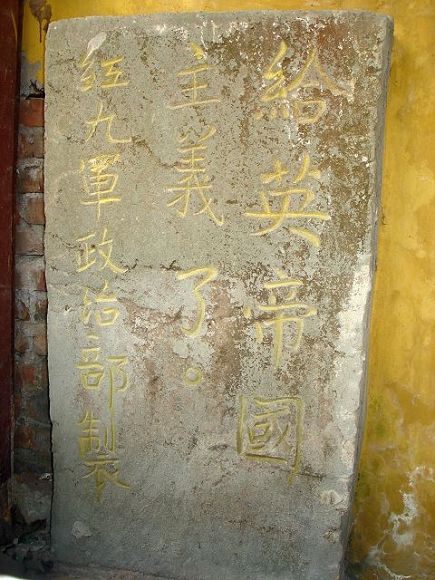 給英帝國
主義了。
紅九軍政治部製